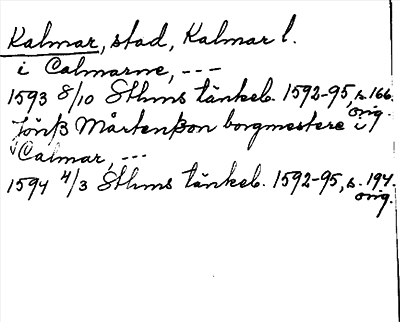 Kalmar, stad, Kalmar l.
i Calmarne, ---
1593 8/10 Sthms tänkeb. 1592-95, s. 166.
orig.
Jönß Mårtenßon borgmestere i
Calmar, ---
1594 4/3 Sthms tänkeb. 1592-95, s. 194.
orig.